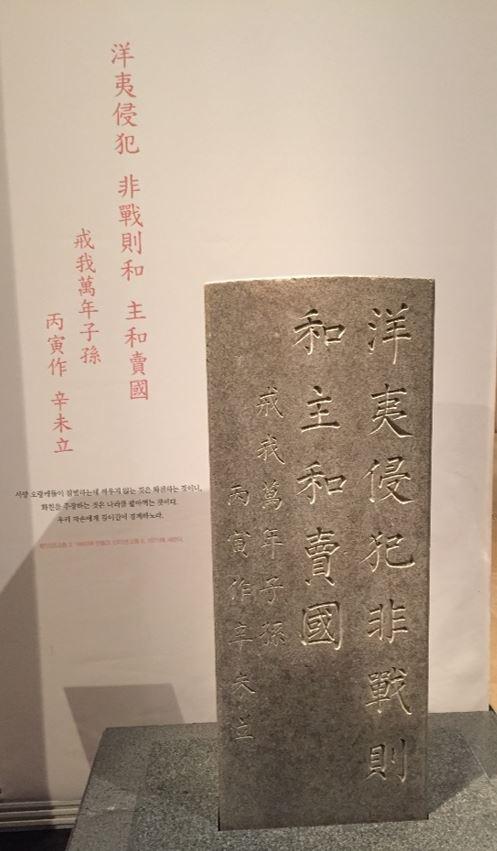 洋夷侵犯 非戰則和 主和賣國
戒我萬年子孫
丙寅作 辛未立
서양 오랑캐들이 침범하는데 싸우지 않는 것은 화친하는 것이니,
화친을 주장하는 것은 나라를 팔아먹는 것이다.
우리 자손에게 길이길이 경계하노라.
洋夷侵犯非戰則
和主和賣國
戒我萬年子孫
丙寅作辛未立